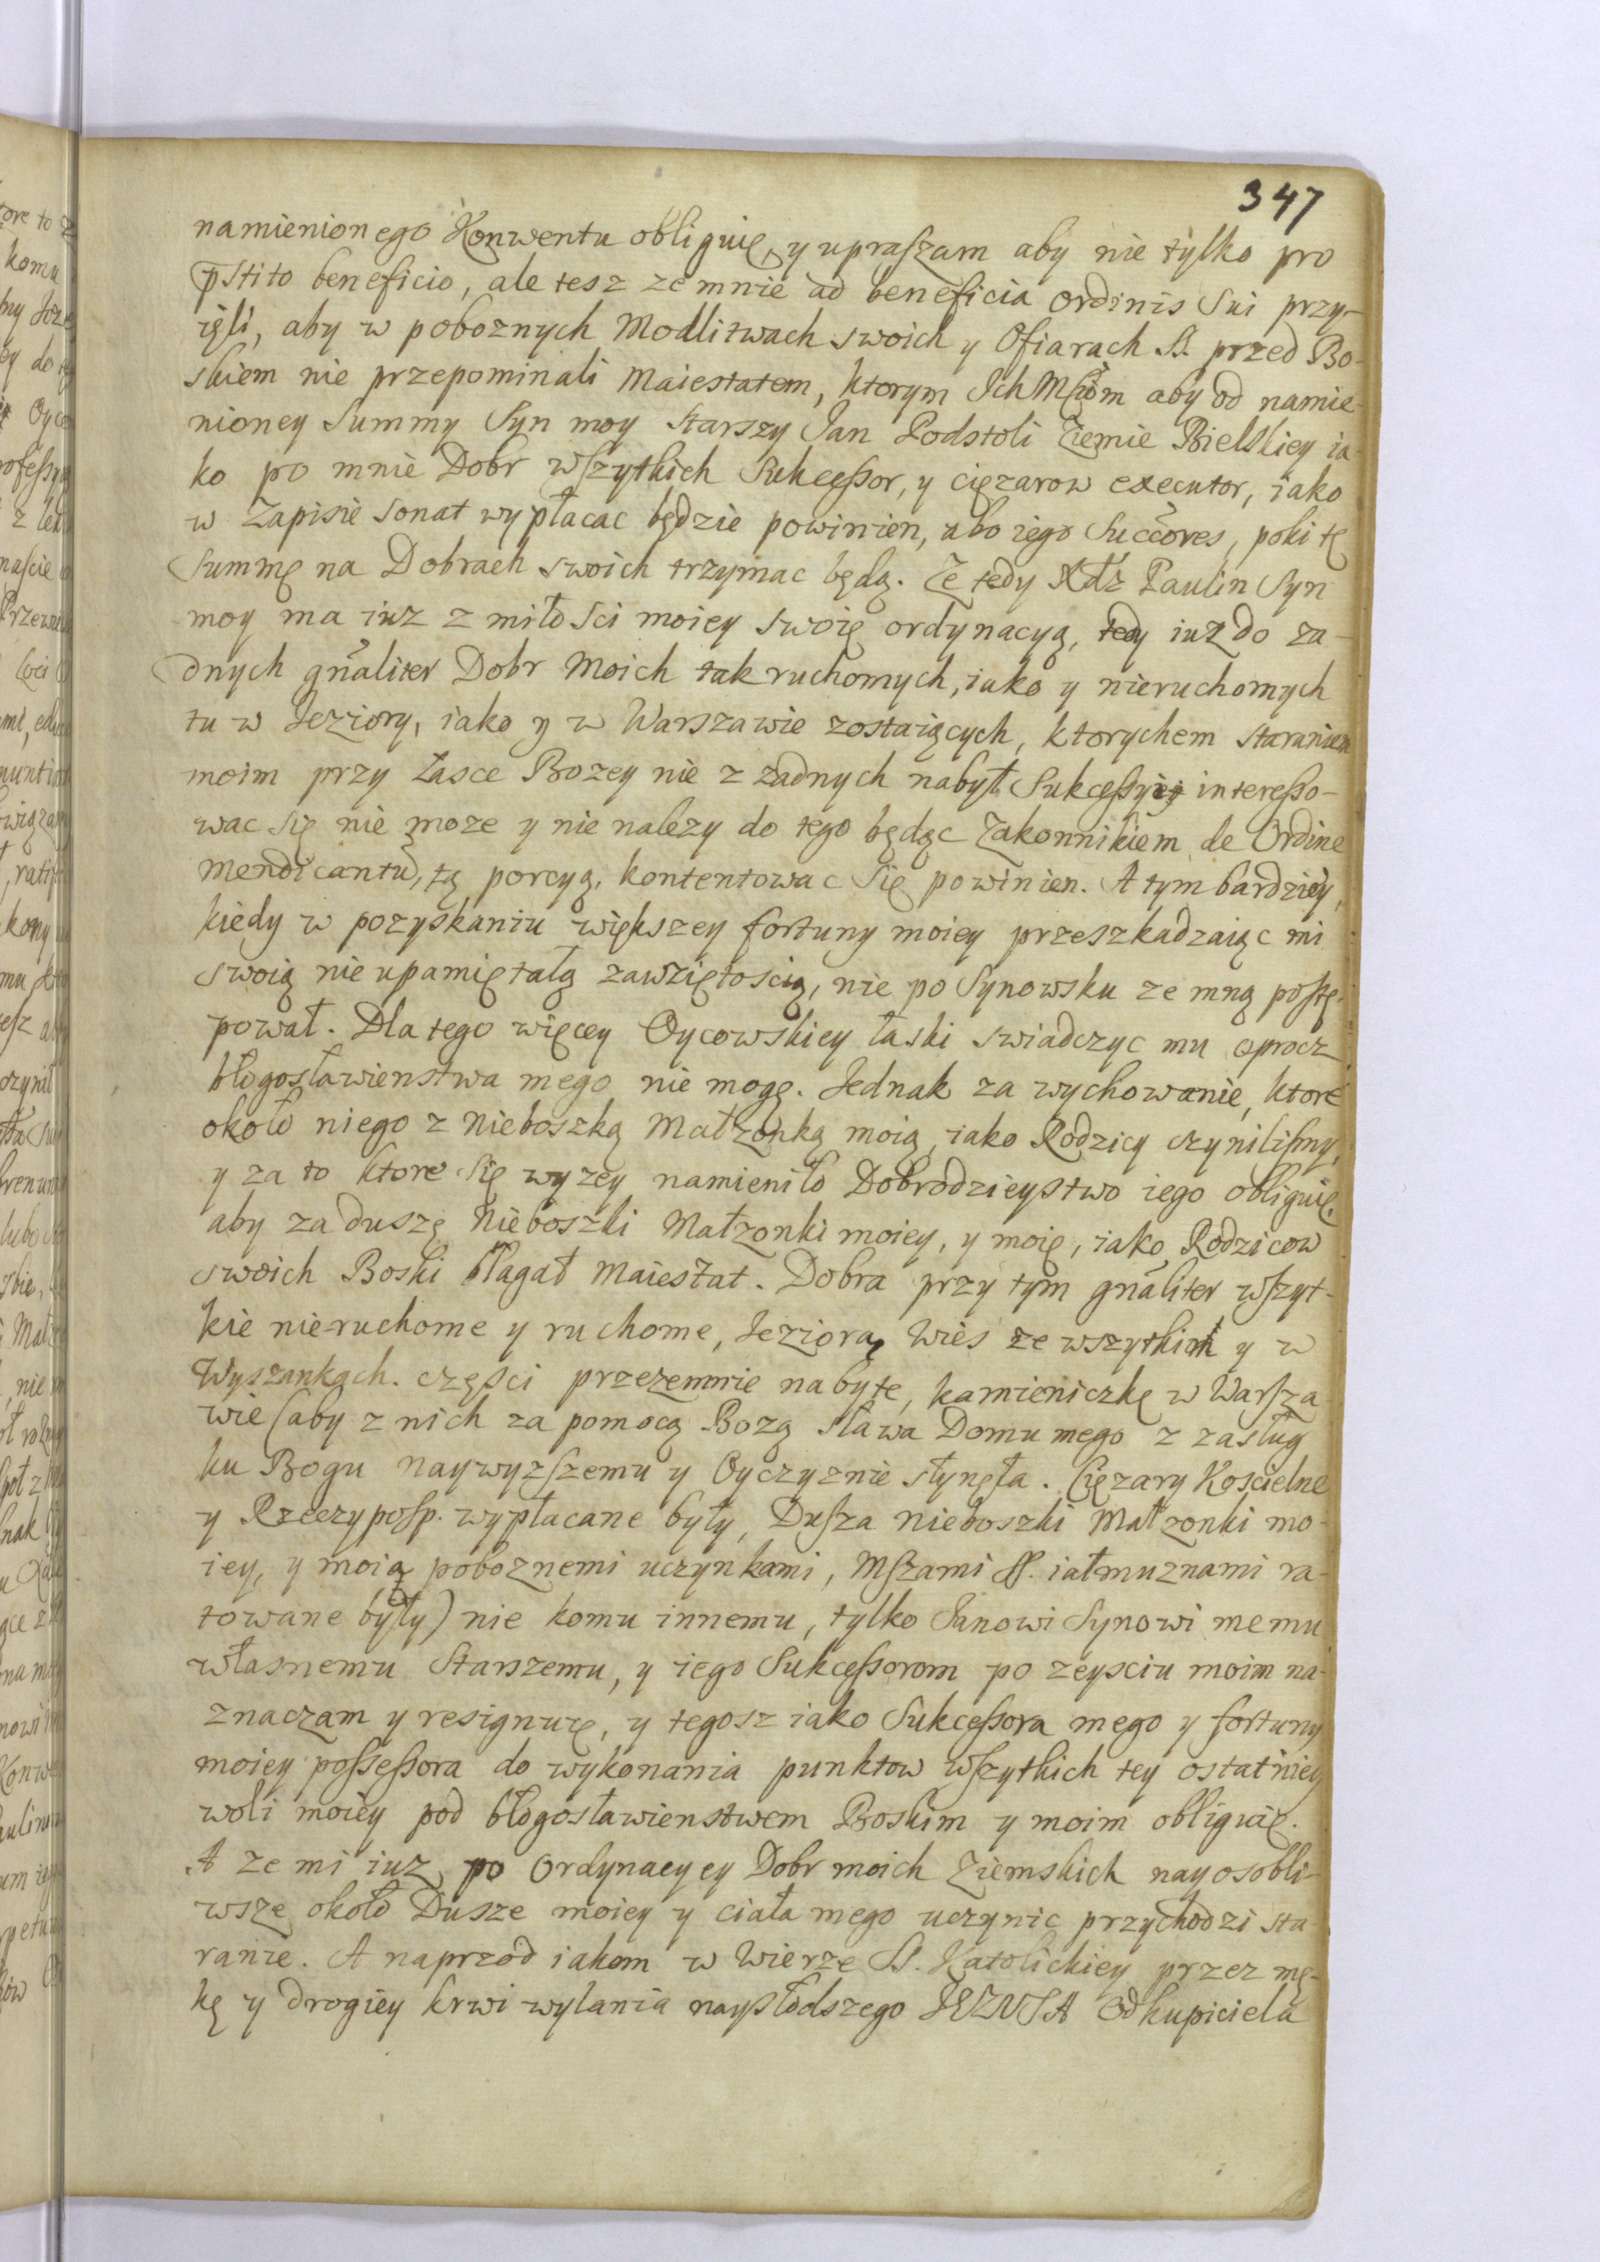 347
namienionego Konwentu obliguię, y upraszam aby nie tylko pro
pstito beneficio, ale tesz ze mnie ad beneficia ordinis Sui przy-
ięli, aby w poboznych Modlitwach swoich y Ofiarach S. przed Bo-
skiem nie przepominali Maiestatem, ktorym Ich Mciom aby od namie-
nioney Summy Syn moy starszy Jan Podstoli Ziemie Bielskiey ia-
ko po mnie Dobr wszytkich Sukcessor, y cięzarow executor, iako
w Zapisie sonat wypłacac będzie powinien, abo iego Succores, poki tę
Summę na Dobrach swoich trzymac będą. Ze tedy Xdz Paulin Syn
moy ma iuz z miłosci moiey swoię ordynacyą, tedy iuz do za-
dnych gnaliter Dobr Moich tak ruchomych, iako y nieruchomych
tu w Jeziory, iako y w Warszawie zostaiących, ktorychem staraniem
moim przy Łasce Bozey nie z zadnych nabył Sukcessyi interesso-
wac się nie moze y nie nalezy do tego będąc Zakonnikiem de Ordine
Mendicantu, tą porcyą, kontentowac się powinien. A tym bardziey,
kiedy w pozyskaniu większey fortuny moiey przeszkadzaiąc mi
swoią nie upamiętałą zawziętoscią, nie po Synowsku ze mną postę-
pował. Dla tego więcey Oycowskiey łaski swiadczyc mu oprocz
błogosławienstwa mego nie mogę. Jednak za wychowanie, ktore
około niego z Nieboszką Małzonką moią, iako Rodzicy czynilismy,
y za to ktore się wyzey namieniło Dobrodzieystwo iego obliguię,
aby za duszę Nieboszki Małzonki moiey, y moię, iako Rodzicow
swoich Boski błagał Maiestat. Dobra przy tym gnaliter wszyt-
kie nieruchome y ruchome, Jeziorą Wies ze wszytkim y w
Wyszankach. częsci przezemnie nabyte, kamieniczkę w Warsza
wie (aby z nich za pomocą Bozą sława Domu mego z zasług
ku Bogu naywyzszemu y Oyczyznie słynęła. Cięzary Koscielne
y Rzeczyposp. wypłacane były, Dusza nieboszki Małzonki mo-
iey, y moią poboznemi uczynkami, Mszami SS. iałmuznami ra-
towane były) nie komu innemu, tylko Janowi Synowi memu
własnemu Starszemu, y iego Sukcessorom po zeysciu moim na-
znaczam y resignuię, y tegosz iako Sukcessora mego y fortuny
moiey possessora do wykonania punktow wszytkich tey ostatniey
woli moiey pod błogosławienstwem Boskim y moim obliguię.
A ze mi iuz po Ordynacyey Dobr moich Ziemskich nayosobli-
wsze około Dusze moiey y ciała mego uczynic przychodzi sta-
ranie. A naprzod iakom w Wierze S. Katolickiey przez mę-
kę y drogiey krwi wylania naysłodszego JEZUSA Odkupiciela